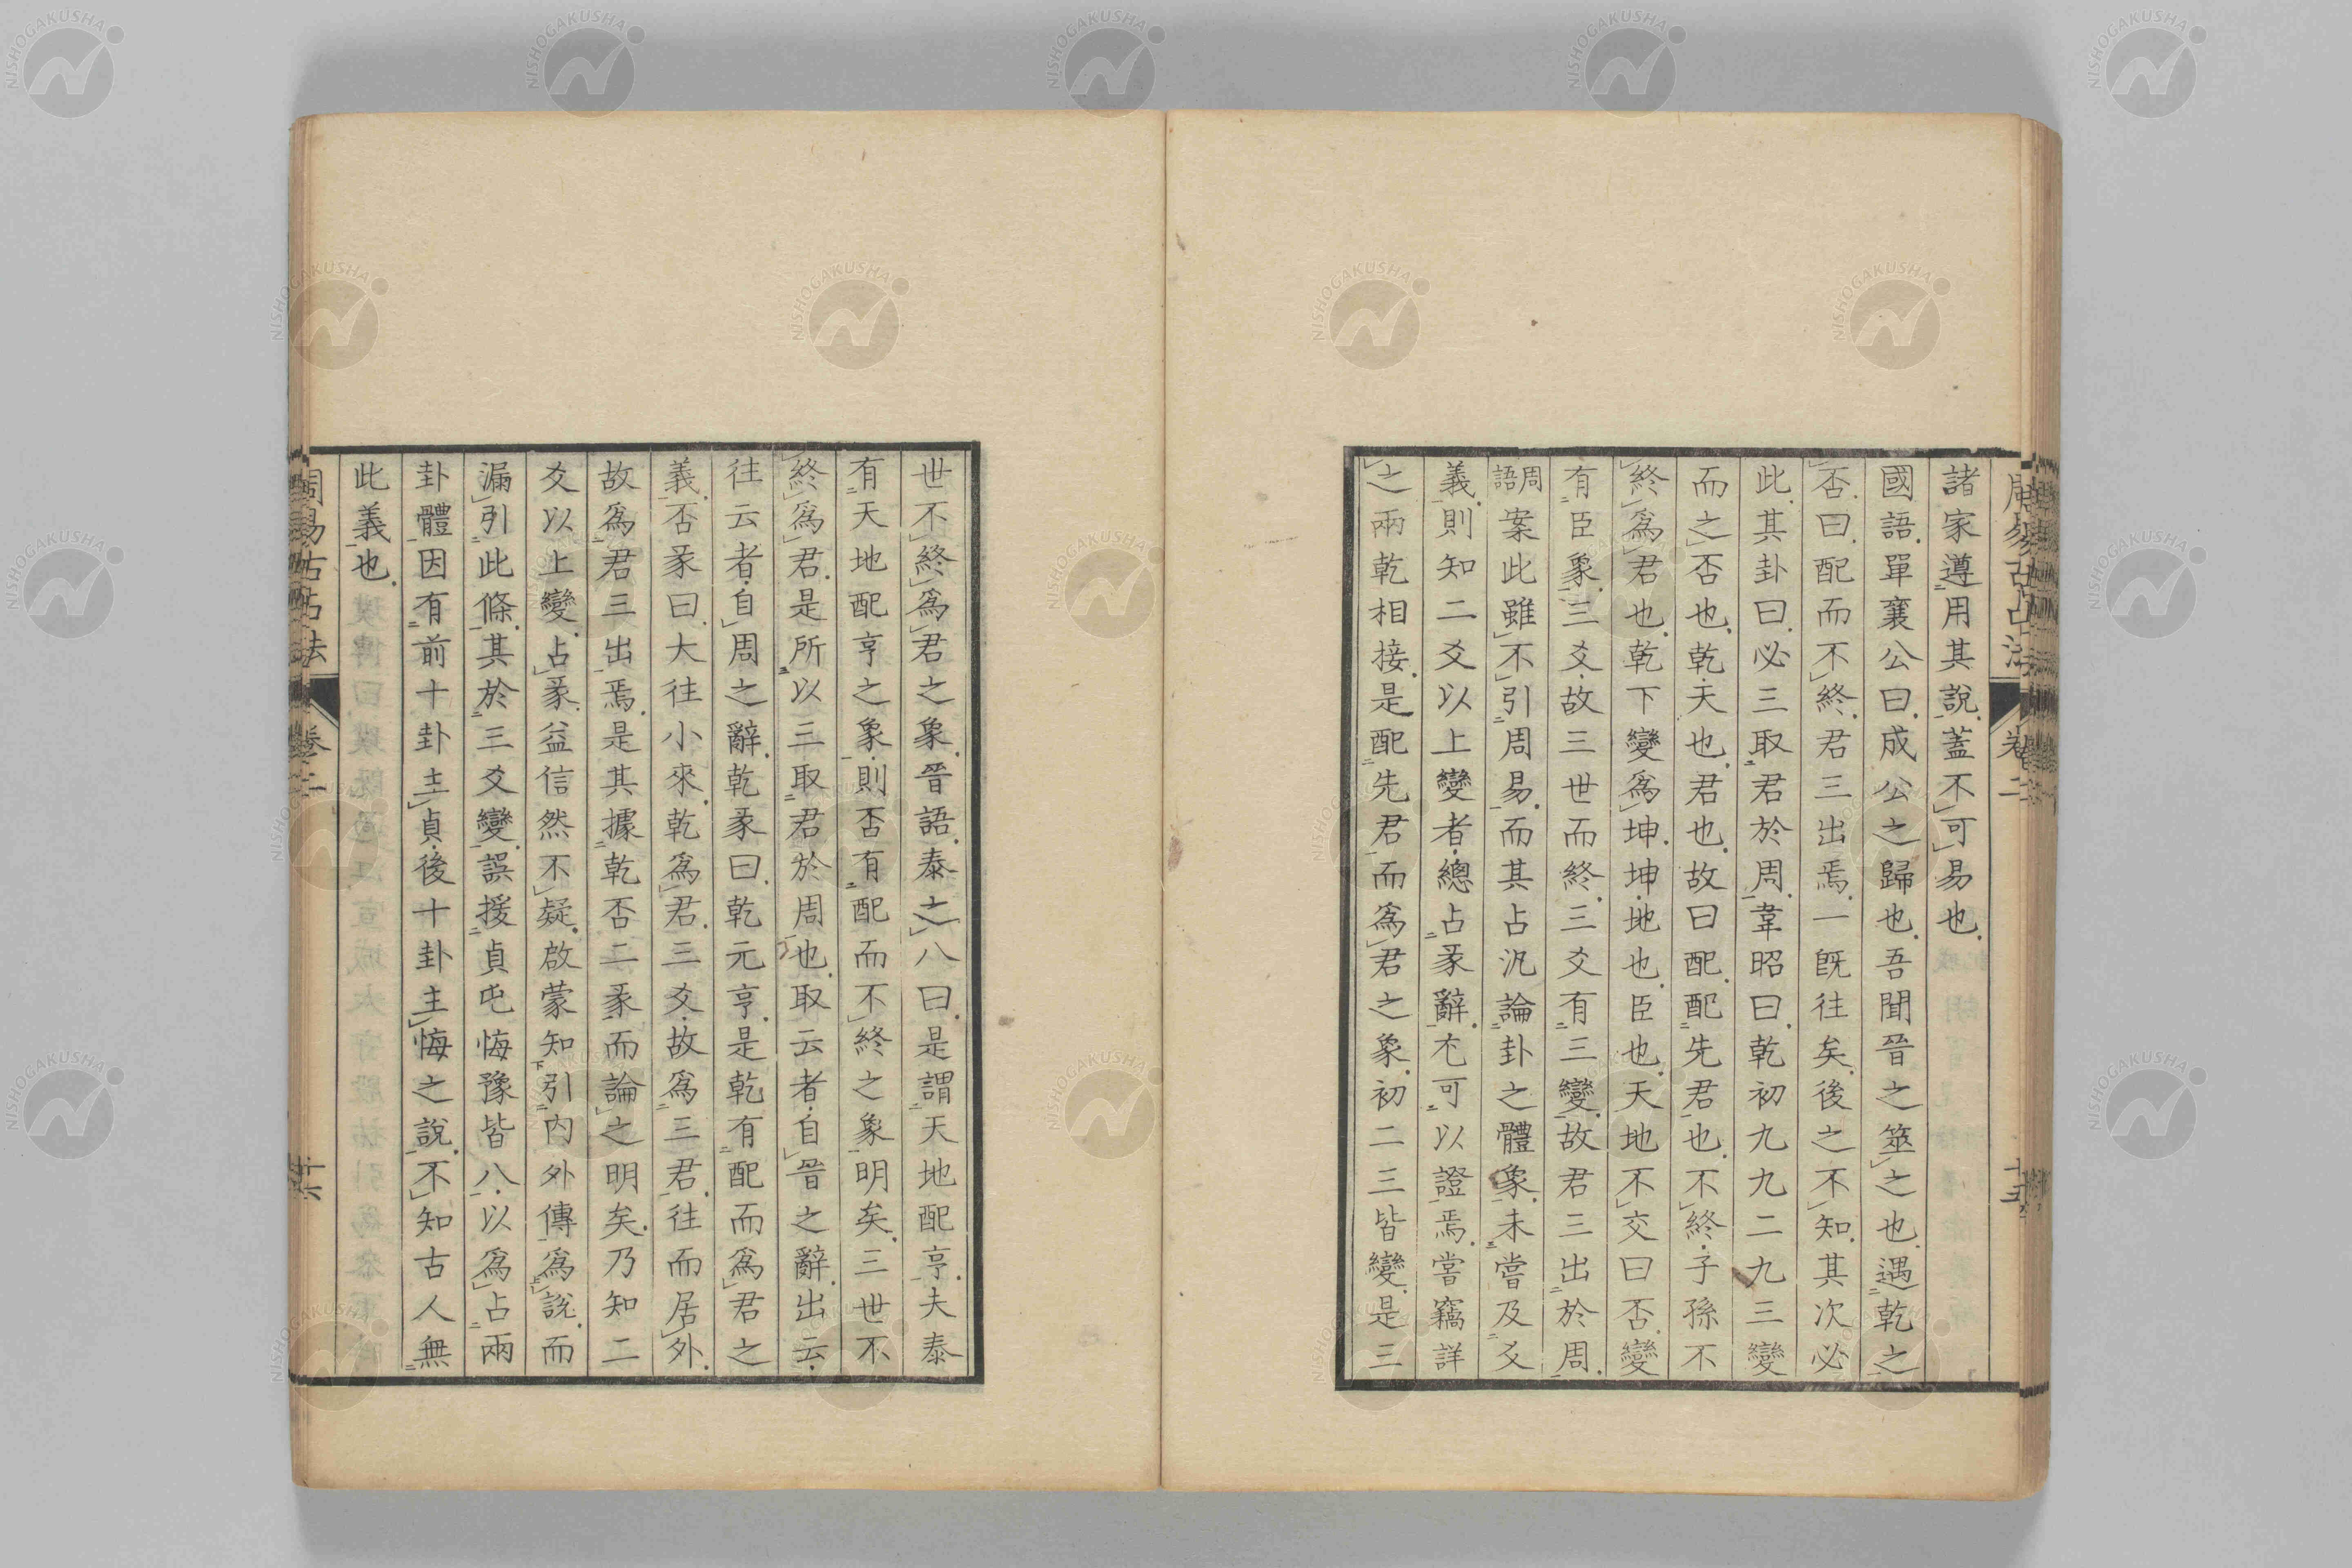 諸家遵用其說蓋不可易也
國語單襄公曰成公之歸也吾聞晉之筮之也遇乾之
否曰配而不終君三出焉一既往矣後之不知其次必
此其卦曰必三取君於周韋昭曰乾初九九二九三變
而之否也乾天也君也故曰配配先君也不終子孫不
終爲君也乾下變爲坤坤地也臣也天地不交曰否變
有臣象三爻故三世而終三爻有三變故君三出於周
周語案此雖不引周易而其占汎論卦之體象未嘗及爻
義則知二爻以上變者總占彖辭尤可以證焉嘗竊詳
之兩乾相接是配先君而爲君之象初二三皆變是三
世不終爲君之象晉語泰之八曰是謂天地配亨夫泰
有天地配亨之象則否有配而不終之象明矣三世不
終爲君是所以三取君於周也取云者自晉之辭出云
往云者自周之辭乾彖曰乾元亨是乾有配而爲君之
義否彖曰大往小來乾爲君三爻故爲三君往而居外
故爲君三出焉是其據乾否二彖而論之明矣乃知二
爻以上變占彖益信然不疑啟蒙知引內外傳爲說而
漏引此條其於三爻變誤援貞屯悔豫皆八以爲占兩
卦體因有前十卦主貞後十卦主悔之說不知古人無
此義也
周易古占法
卷二
NISHOGAKUSHA